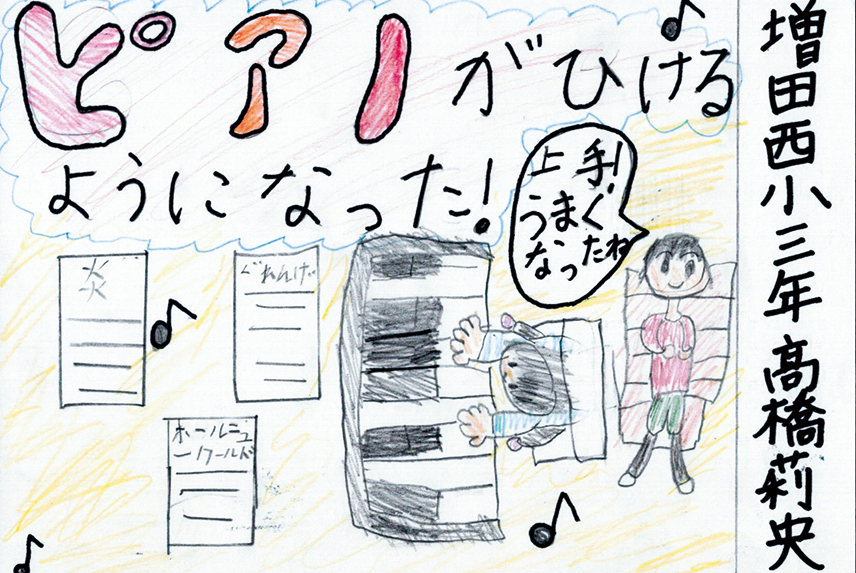 ピアノがひける
ようになった!
上手!
うまく
なったね
炎
ぐれんげ
ホールニュ
ーワールド
増田西小三年 高橋莉央